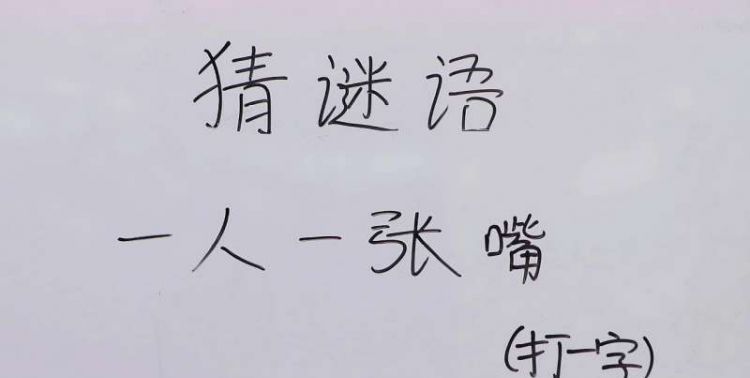 猜谜语
一人一张嘴
(打一字)